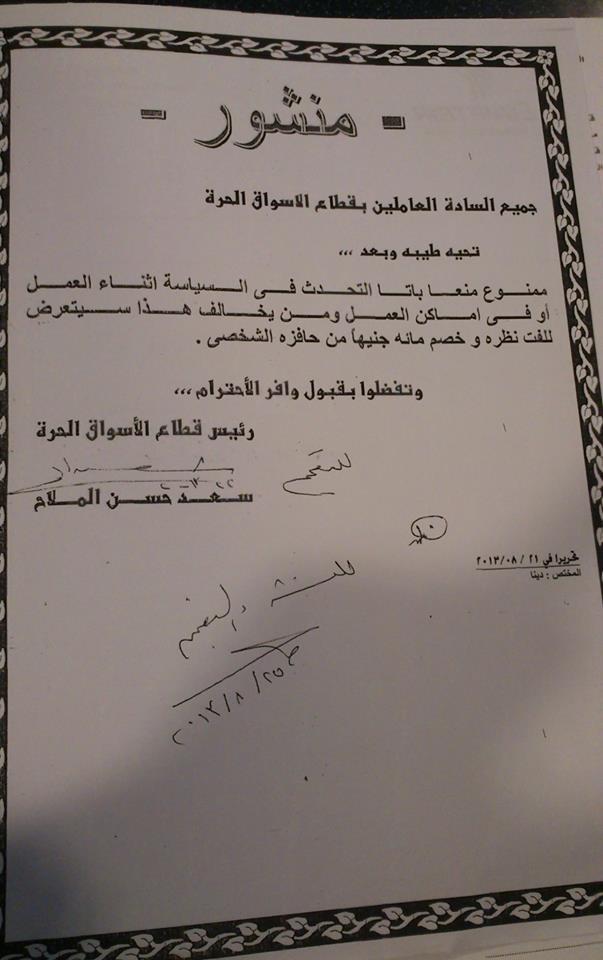 - منشور -
جميع السادة العاملين بقطاع الاسواق الحرة
تحيه طيبه وبعد ،،،
ممنوع منعا باتا التحدث فى السياسة اثناء العمل
أو فى اماكن العمل ومن يخالف هذا سيتعرض
للفت نظره و خصم مائه جنيهاً من حافزه الشخصى .
وتفضلوا بقبول وافر الأحترام ،،،
رئيس قطاع الأسواق الحرة
سعد حسن الملاح
تحريرا في ٢١ / ٠٨ / ٢٠١٣
المختص : دينا
للنشر والتنبيه
٢٠١٣/٨/٢٥